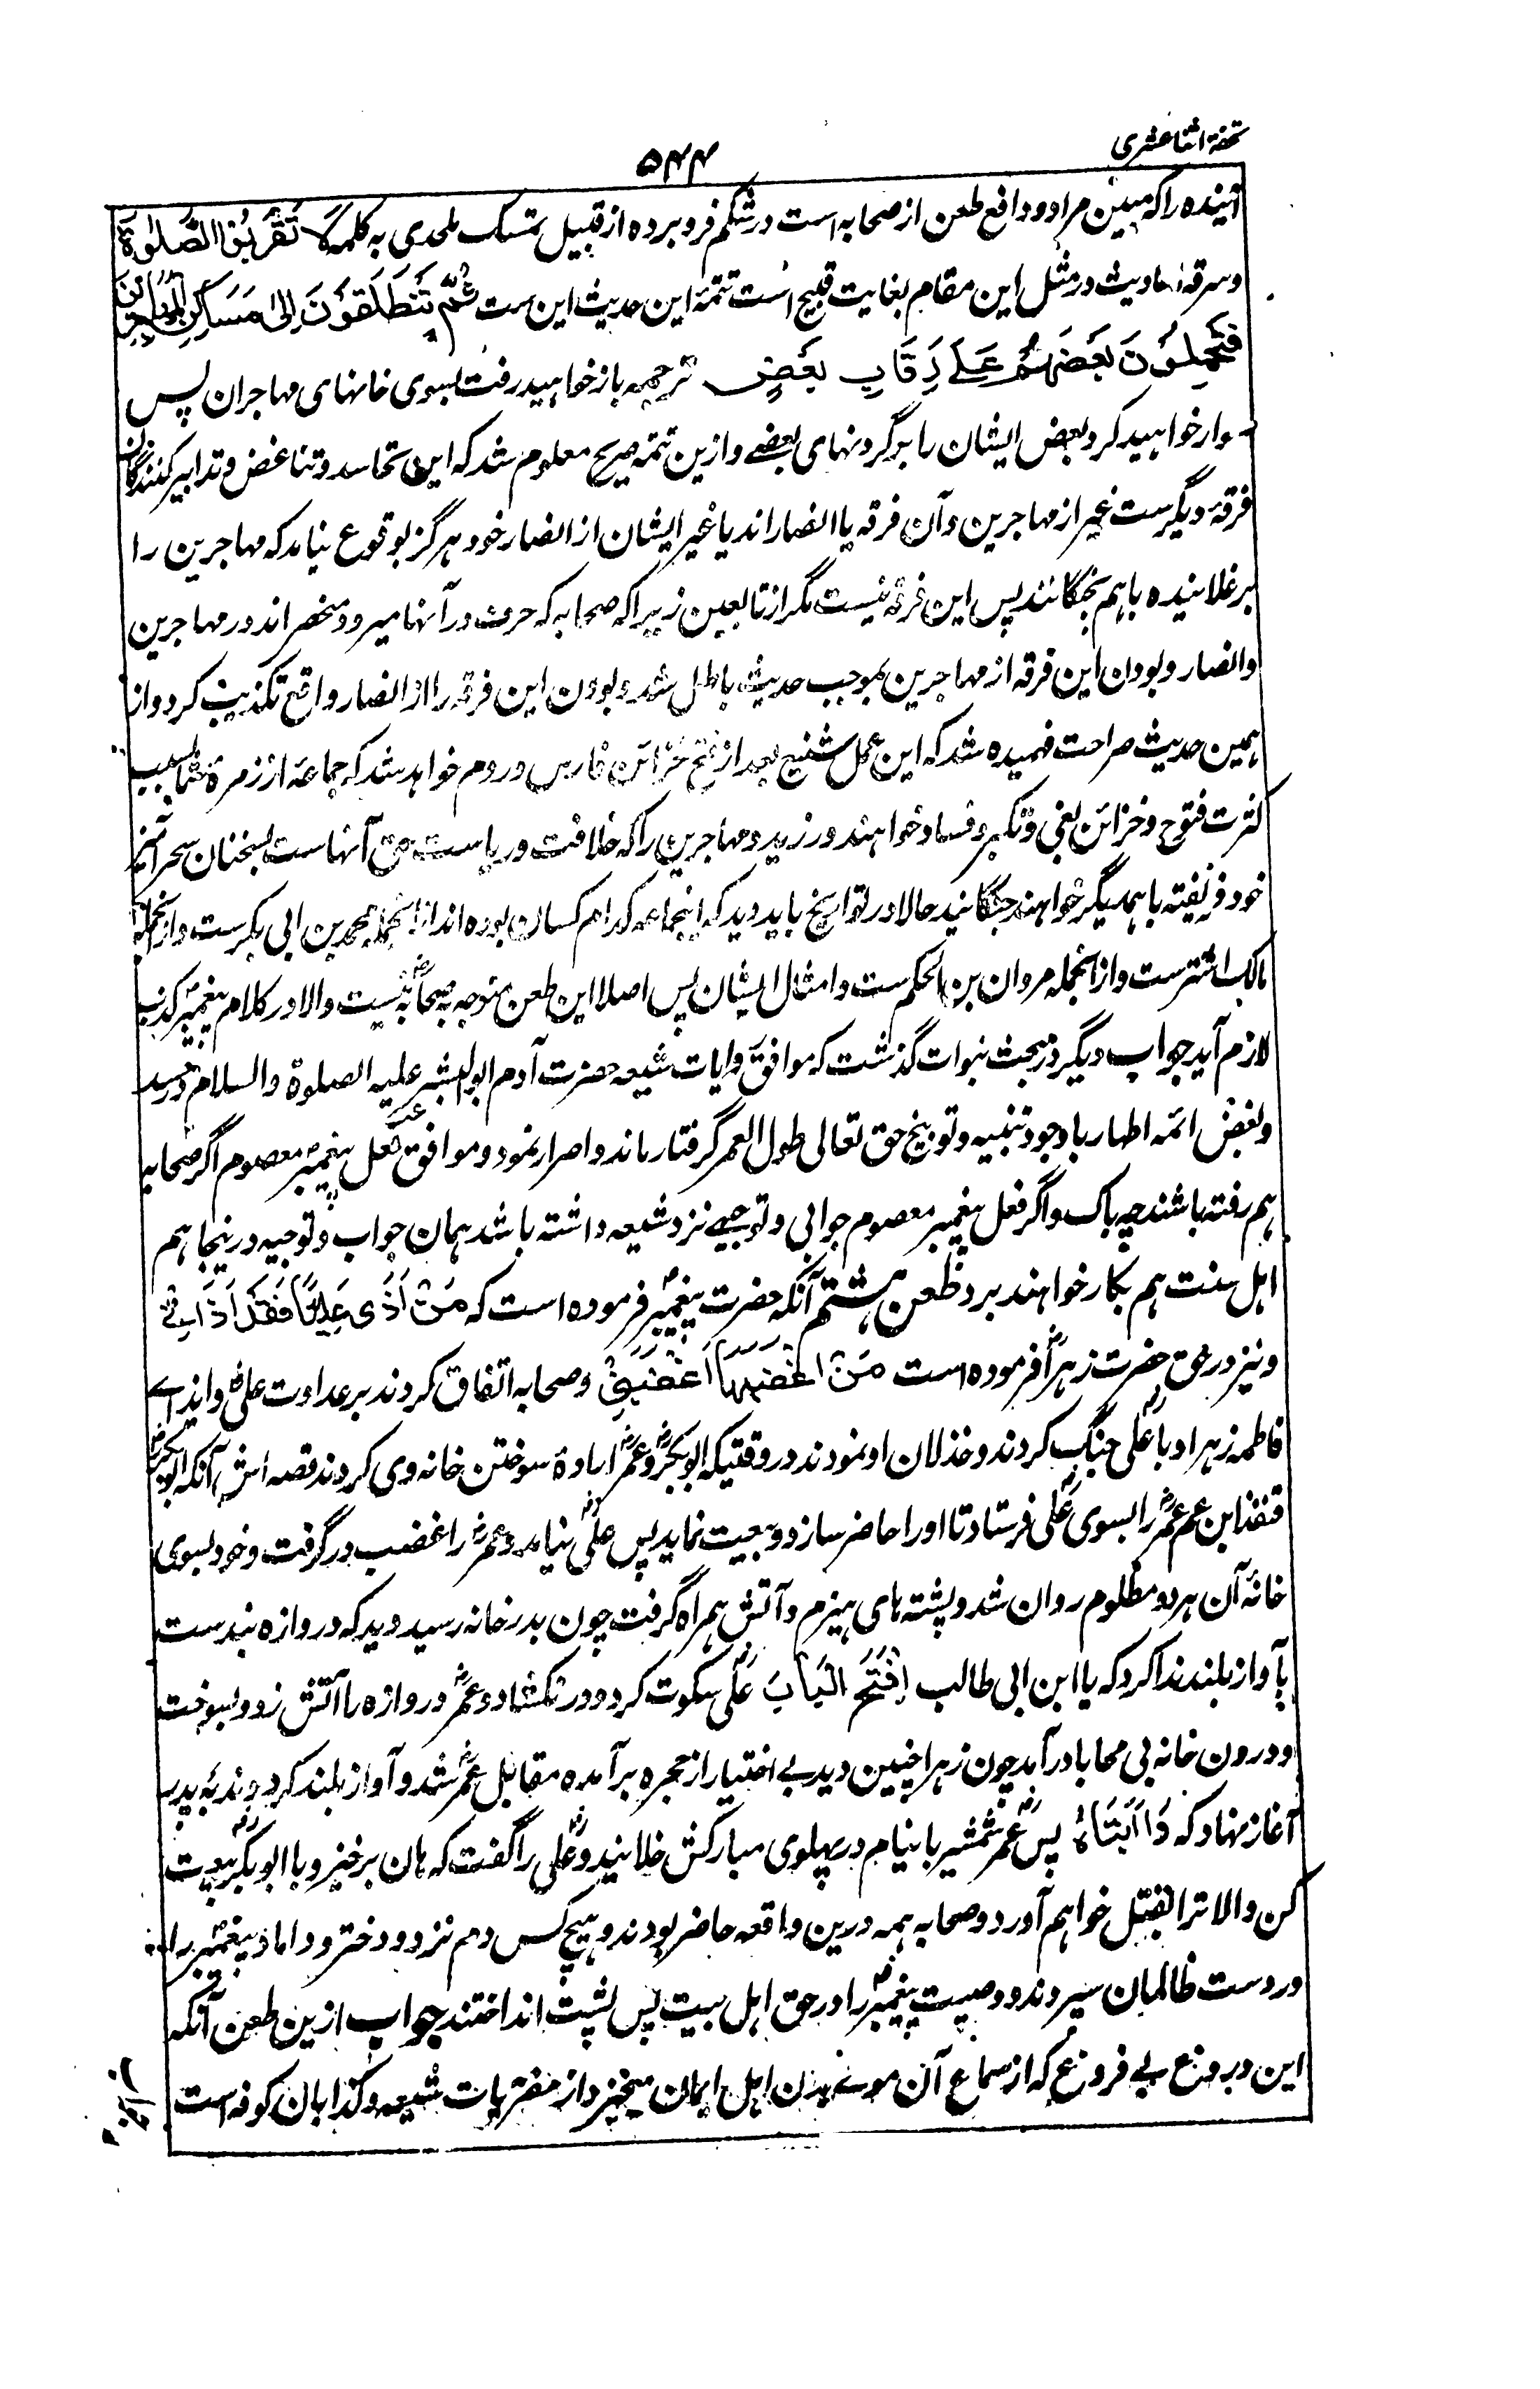 تحفهٔ اثنا عشری
۵۴۴
آینده را که مبین مراد و دافع طعن از صحابه است در شکم فرو برده از قبیل تمسک ملحدی به کلمه لَا تَقْرَبُوا الصَّلوٰةَ
و سرقهٔ احادیث در مثل این مقام بغایت قبیح است تتمهٔ این حدیث این ست ثُمَّ تَنْطَلِقُوْنَ اِلیٰ مَسَاکِنِ الْمُهَاجِرِیْنَ
فَتَحْمِلُوْنَ بَعْضَهُمْ عَلےٰ رِقَابِ بَعْضٍ ترجمه باز خواهید رفت بسوی خانهای مهاجران پس
سوار خواهید کرد بعض ایشان را بر گردنهای بعضے و ازین تتمه صریح معلوم شد که این تحاسد و تباغض و تدابیر کنندگان
فرقهٔ دیگرست غیر از مهاجرین و آن فرقه یا انصار اند یا غیر ایشان از انصار خود هرگز بوقوع نیامد که مهاجرین را
برغلانیده باهم بجنگانند پس این فرقه نیست مگر از تابعین زیرا که صحابه که حرف در آنها میرود منحصر اند در مهاجرین
و انصار و بودن این فرقه از مهاجرین بموجب حدیث باطل شد و بودن این فرقه را از انصار واقع تکذیب کرد و از
همین حدیث صراحت فهمیده شد که این عمل شنیع بعد از فتح خزائن فارس و روم خواهد شد که جماعه از زمرهٔ شما بسبب
کثرت فتوح و خزائن بغی و تکبر و فساد خواهند ورزید و مهاجرین را که خلافت و ریاست حق آنهاست بسخنان سحر آمیز
خود فریفته با همدیگر خواهند جنگانید حالا در تواریخ باید دید که اینجماعه کدام کسان بوده اند از انجمله محمد بن ابی بکرست و از انجمله
مالک اشترست و از انجمله مروان بن الحکم ست و امثال ایشان پس اصلا این طعن متوجه به صحابه نیست و الا در کلام پیغمبر کذب
لازم آید جواب دیگر در بحث نبوات گذشت که موافق روایات شیعه حضرت آدم ابو البشر علیه الصلوة والسلام در حسد
و بغض ائمه اطهار باوجود تنبیه و توبیخ حق تعالی طول العمر گرفتار ماند و اصرار نمود و موافق فعل پیغمبر معصوم اگر صحابه
هم رفته باشند چه باک و اگر فعل پیغمبر معصوم جوابی و توجیهے نزد شیعه داشته باشد همان جواب و توجیه درینجا هم
اهل سنت هم بکار خواهند برد طعن هشتم آنکه حضرت پیغمبر فرموده است که مَنْ اَذٰی عَلِیًّا فَقَدْ اَذَانِیْ
و نیز در حق حضرت زهرا فرموده است مَنْ اَغْضَبَهَا اَغْضَبَنِیْ و صحابه اتفاق کردند بر عداوت علی و ایذاے
فاطمه زهرا و با علی جنگ کردند و خذلان او نمودند در وقتیکه ابوبکر و عمر ارادهٔ سوختن خانه وی کردند قصه اش آنکه ابوبکر
قنفذ ابن عم عمر را بسوی علی فرستاد تا او را حاضر سازد و بیعت نماید پس علی نیامد و عمر را غضب در گرفت و خود بسوی
خانهٔ آن هر دو مظلوم روان شد و پشته های هیزم و آتش همراه گرفت چون بدر خانه رسید دید که دروازه بندست
بآواز بلند ندا کرد که یا ابن ابی طالب اِفْتَحِ الْبَابَ علی سکوت کرد و در نکشاد و عمر دروازه را آتش زد و بسوخت
و درون خانه بی محابا درآمد چون زهرا چنین دید بے اختیار از حجره برآمده مقابل عمر شد و آواز بلند کرد و ندبه پدر
آغاز نهاد که وَا اَبَتَاهُ پس عمر شمشیر با نیام در پهلوی مبارکش خلانید و علی را گفت که هان برخیز و با ابوبکر بیعت
کن و الا ترا بقتل خواهم آورد و صحابه همه درین واقعه حاضر بودند و هیچ کس دم نزد و دختر و داماد پیغمبر را
در دست ظالمان سپردند و وصیت پیغمبر را در حق اهل بیت پس پشت انداختند جواب ازین طعن آنکه
این دروغ بے فروغ که از سماع آن مو بر بدن اهل ایمان میخیزد از مفتریات شیعه و کذابان کوفه است